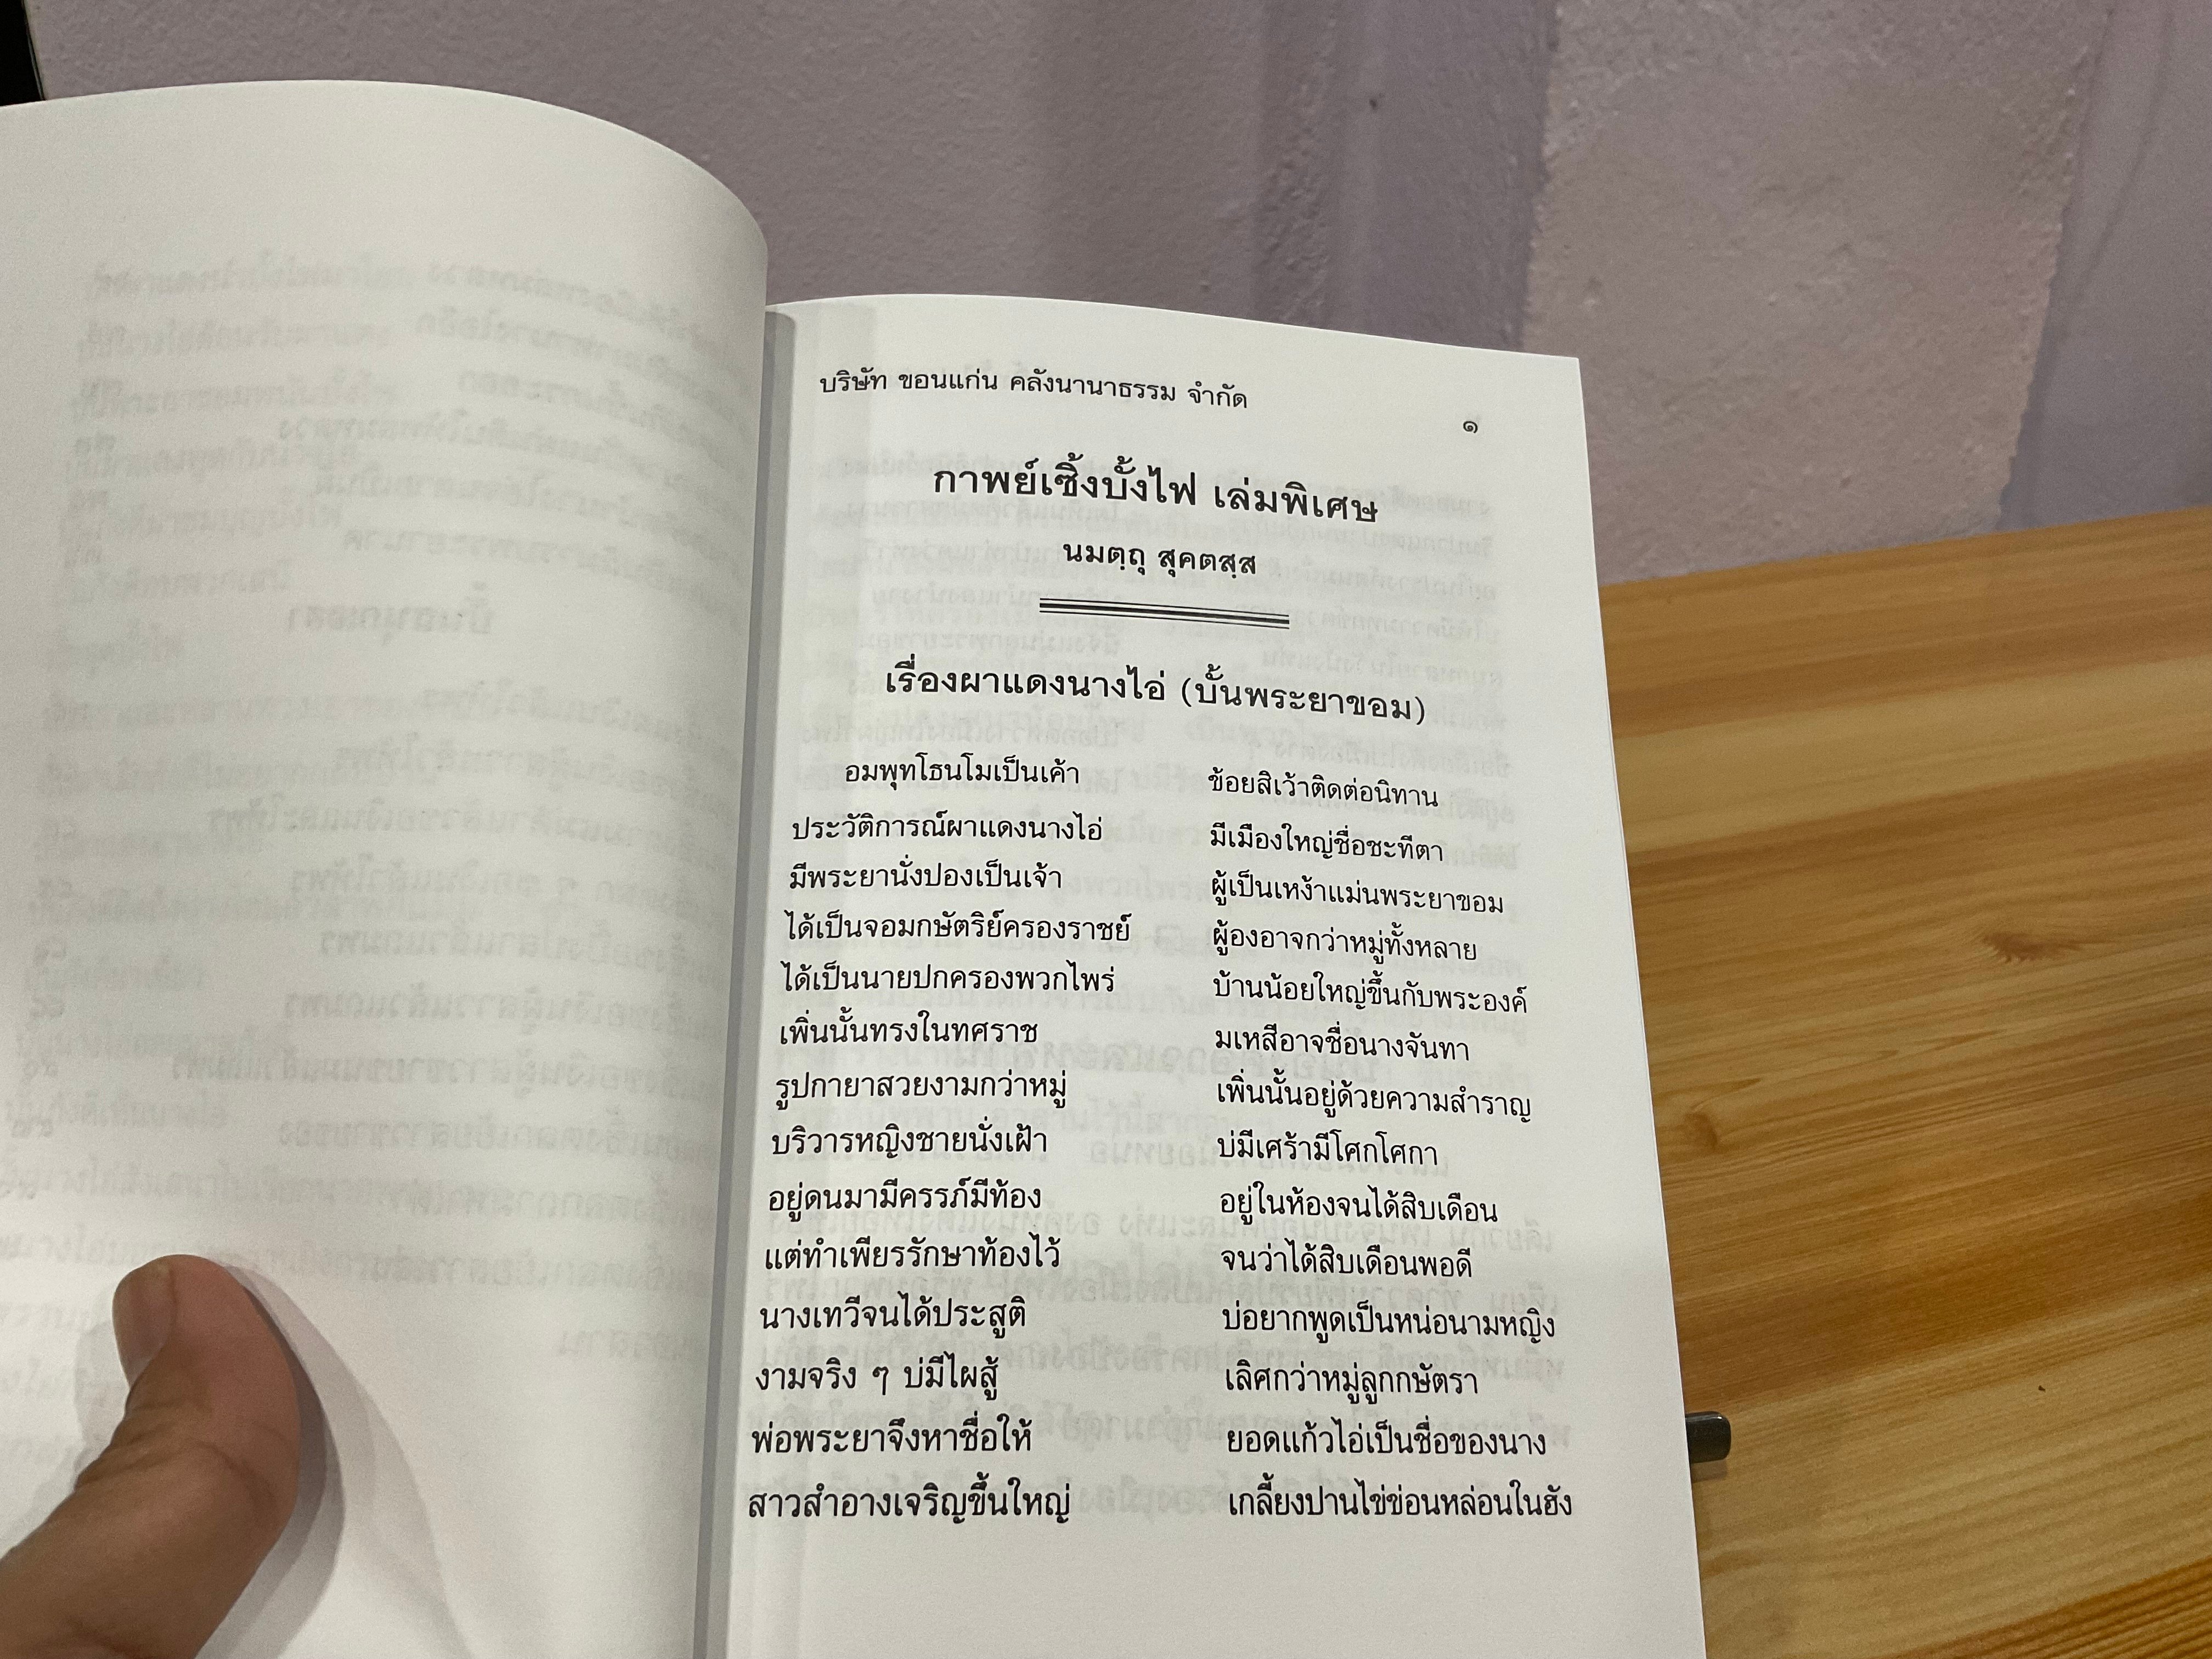 บริษัท ขอนแก่น คลังนานาธรรม จำกัด ๑
กาพย์เซิ้งบั้งไฟ เล่มพิเศษ
นมตฺถุ สุคตสฺส
เรื่องผาแดงนางไอ่ (บั้นพระยาขอม)
อมพุทโธนโมเป็นเค้า ข้อยสิเว้าติดต่อนิทาน
ประวัติการณ์ผาแดงนางไอ่ มีเมืองใหญ่ชื่อชะทีตา
มีพระยานั่งปองเป็นเจ้า ผู้เป็นเหง้าแม่นพระยาขอม
ได้เป็นจอมกษัตริย์ครองราชย์ ผู้องอาจกว่าหมู่ทั้งหลาย
ได้เป็นนายปกครองพวกไพร่ บ้านน้อยใหญ่ขึ้นกับพระองค์
เพิ่นนั้นทรงในทศราช มเหสีอาจชื่อนางจันทา
รูปกายาสวยงามกว่าหมู่ เพิ่นนั้นอยู่ด้วยความสำราญ
บริวารหญิงชายนั่งเฝ้า บ่มีเศร้ามีโศกโศกา
อยู่ดนมามีครรภ์มีท้อง อยู่ในห้องจนได้สิบเดือน
แต่ทำเพียรรักษาท้องไว้ จนว่าได้สิบเดือนพอดี
นางเทวีจนได้ประสูติ บ่อยากพูดเป็นหน่อนามหญิง
งามจริง ๆ บ่มีไผสู้ เลิศกว่าหมู่ลูกกษัตรา
พ่อพระยาจึงหาชื่อให้ ยอดแก้วไอ่เป็นชื่อของนาง
สาวสำอางเจริญขึ้นใหญ่ เกลี้ยงปานไข่ข่อนหล่อนในฮัง